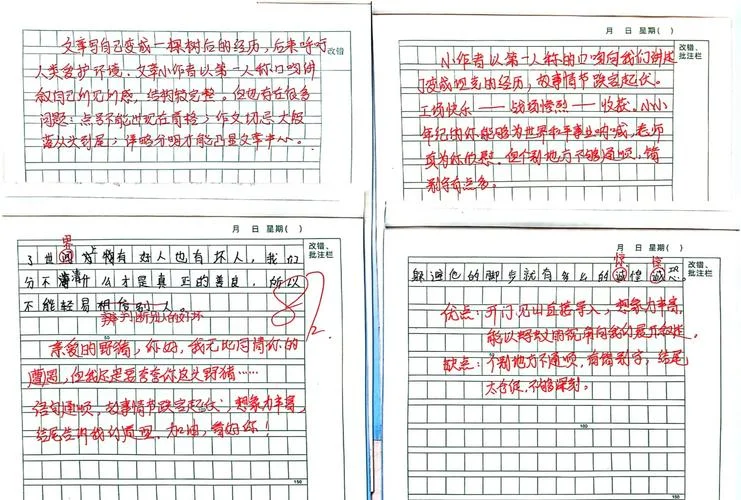 文章写自己变成一棵树后的经历,后来呼吁
改错
人类爱护环境。文章小作者以第一人称口吻讲
叙自己的见闻感,结构较完整。但也存在很多
问题:点号不能出现在首格;作文切忌大版
落从头到尾;详略分明才能凸显文章中心。
月 日 星期( )
改错、
批注栏
小作者以第一人称的口吻向我们讲述
了变成坦克的经历,故事情节跌宕起伏。
工场快乐——战场惨烈——收获。小小
年纪的你能够为世界和平事业呐喊,老师
真为你欣慰。但个别地方不够通顺,错
别字有点多。
月 日 星期( )
改错、
批注栏
界
了世间 有好人也有坏人,我们
分不清什么才是真正的善良,所以
不能轻易相信别人。
辩判断他人的好坏
82
50
亲爱的野猪,你好,我无比同情你的
遭遇,但我还是要夸夸你这头野猪……
语句通顺,故事情节跌宕起伏,想象力丰富,
结尾告诉我们道理。加油,看好你!
150
月 日 星期( )
改错、
批注栏
惊 惶
躲避他的脚步就有多么的诚惶诚恐。
优点:开门见山直接导入,想象力丰富,
能以蚂蚁的视角向我们展开叙述。
缺点:个别地方不通顺,有错别字;结尾
太仓促,不够深刻。
100
150